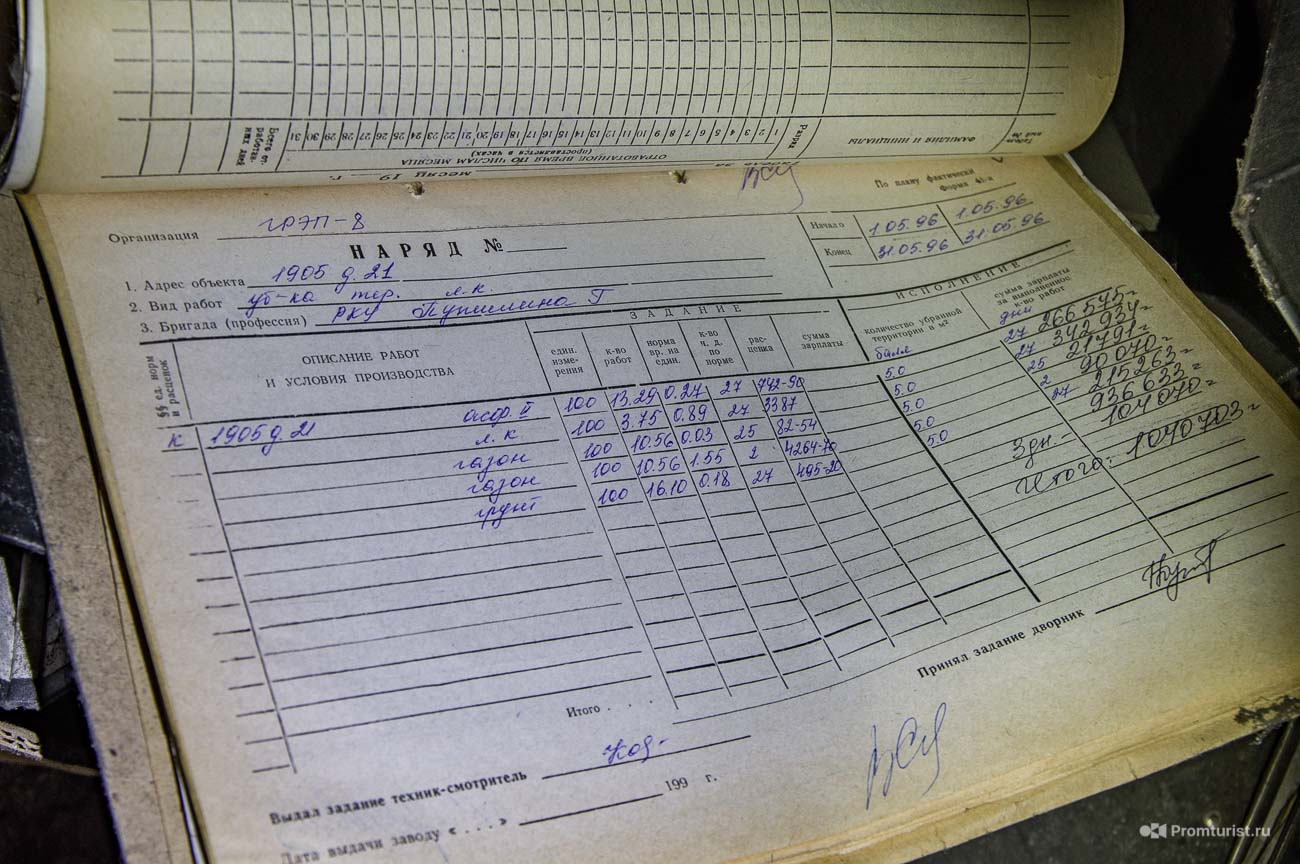 Табель-
ный №
ФАМИЛИЯ И ИНИЦИАЛЫ
Разряд
ОТРАБОТАННОЕ ВРЕМЯ ПО ЧИСЛАМ МЕСЯЦА
(проставляется в часах)
1 2 3 4 5 6 7 8 9 10 11 12 13 14 15 16 17 18 19 20 21 22 23 24 25 26 27 28 29 30 31
Всего от-
работан-
ных дней
месяц 19 — г.
По плану фактически
Форма
Организация ГРЭП-8
НАРЯД №
Начало 1.05.96 1.05.96
Конец 31.05.96 31.05.96
1. Адрес объекта 1905 д. 21
2. Вид работ уб-ка тер. л.к.
3. Бригада (профессия) РКУ Пупилина Г
ЗАДАНИЕ
ИСПОЛНЕНИЕ
§§ ед. норм и расценок
ОПИСАНИЕ РАБОТ И УСЛОВИЯ ПРОИЗВОДСТВА
един. изме-рения
к-во работ
норма вр. на един.
к-во ч. д. по норме
рас-ценка
сумма зарплаты
количество убранной территории в м² баллы
сумма зарплаты за выполненное к-во работ
дни
к 1905 д. 21 асф. II 100 13.29 0.27 27 742-90 5.0 27 266575=
л.к 100 3.75 0.89 27 3387 5.0 27 342934=
газон 100 10.56 0.03 25 82-54 5.0 25 21791=
газон 100 10.56 1.55 2 4264-70 5.0 2 90070=
грунт 100 16.10 0.18 27 495-20 5.0 27 215263=
936633=
3дн. - 104070=
Итого: 1040703=
Итого . . . .
Принял задание дворник
Выдал задание техник-смотритель
Дата выдачи заводу « . . . » 199 г.
Promturist.ru